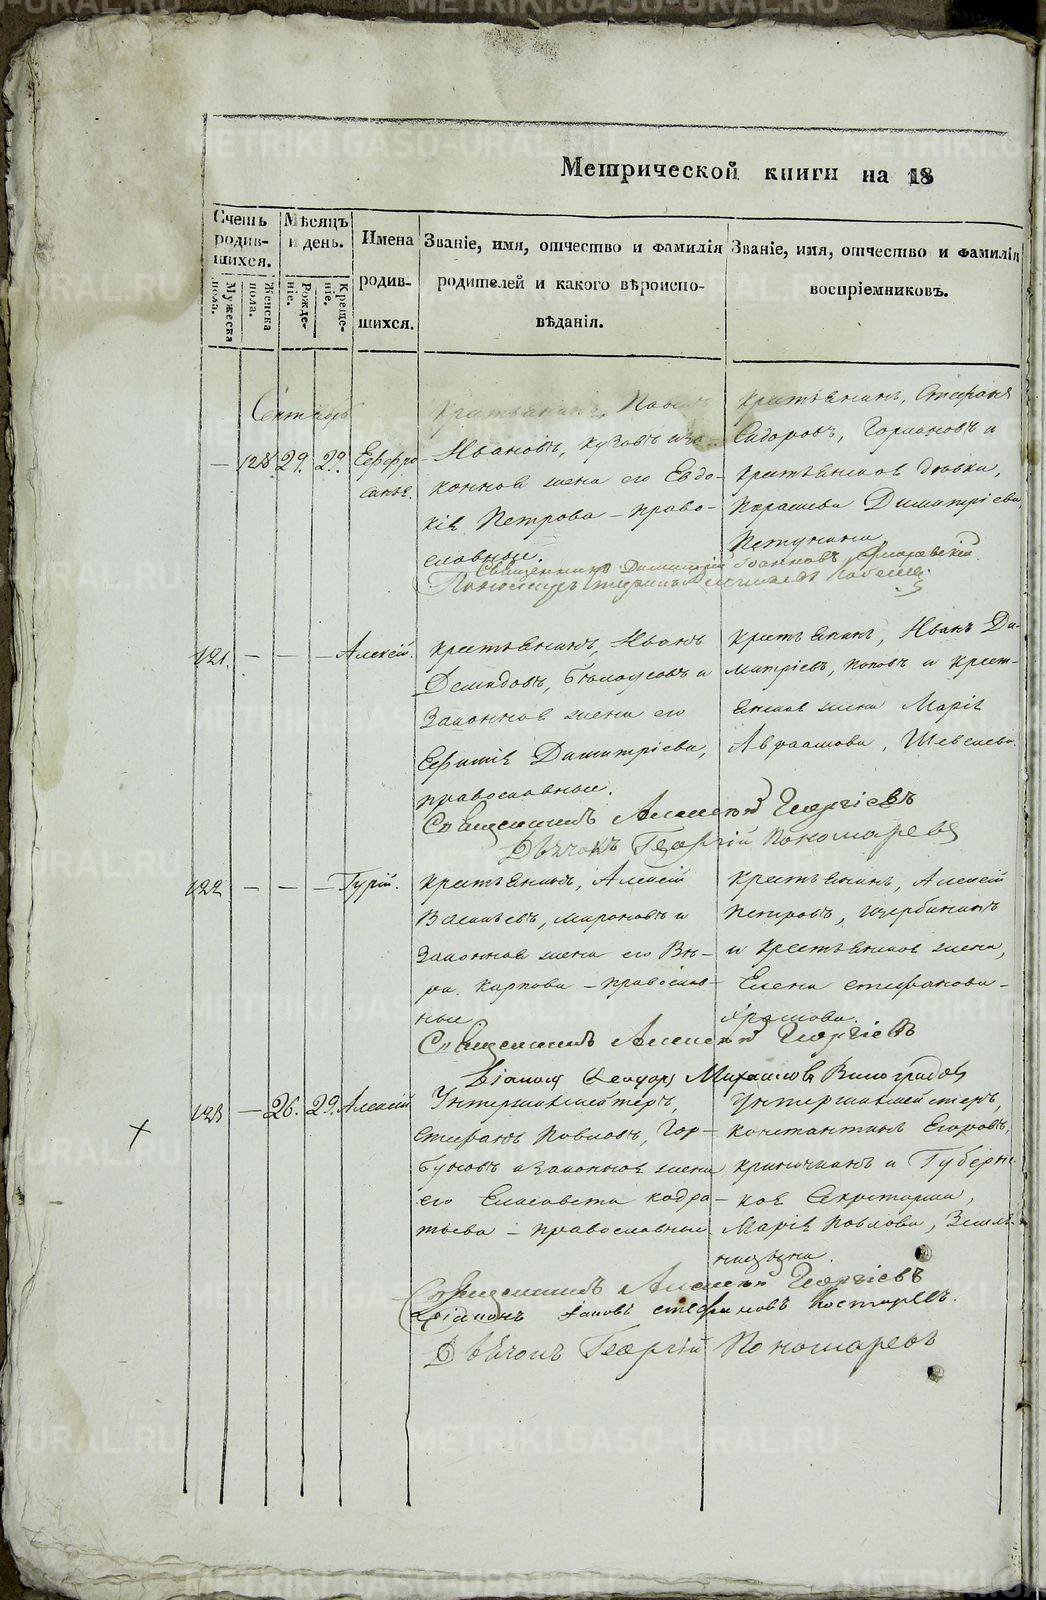 Метрической книги на 18
Счетъ родив-шихся.
Мужеска пола.
Женска пола.
Мѣсяцъ и день.
Рожде-ніе.
Креще-ніе.
Имена родив-шихся.
Званіе, имя, отчество и фамилія
родителей и какого вѣроиспо-
вѣданія.
Званіе, имя, отчество и фамилія
воспріемниковъ.
Сентябрь
— 128 29. 29. Евфро-
Крестьянинъ, Павелъ
Ивановъ,
конная жена его Евдо-
кія Петрова – право-
славные.
Крестьянинъ, Стефанъ
Сидоровъ, и
крестьянская дѣвка,
Димитріева
Священникъ Димитрій Іоанновъ
121. — — — Алексій.
Крестьянинъ, Иванъ
Демидовъ, Бѣлоусовъ и
Законная жена его
Евфимія Димитріева,
православные.
Крестьянинъ, Иванъ Ди-
митріевъ, Поповъ и крест-
янская жена Марія
Авраамова, Шевелева.
Священникъ Алексій Георгіевъ
Дьячокъ Георгій Пономаревъ
122 — — — Гурій.
Крестьянинъ, Алексій
Васильевъ, Мироновъ и
Законная жена его Вѣ-
ра Карпова – православ-
ные
Крестьянинъ, Алексій
Петровъ, Щербининъ
и Крестьянская жена,
Елена Стефанова –
Священникъ Алексій Георгіевъ
Діаконъ Ѳеодоръ Михайловъ Виноградовъ
123 — 26. 29. Алексій
Унтершихмейстеръ,
Стефанъ Павловъ, Гор-
буновъ и Законная жена
его Елисавета Кодра-
тьева – православные
Унтершихмейстеръ,
Константинъ Егоровъ,
и Губернс-
кая Секретарша,
Марія Павлова,
Священникъ Алексій Георгіевъ
Діаконъ Іаковъ Стефановъ Костаревъ.
Дьячокъ Георгій Пономаревъ
METRIKI.GASO-URAL.RU